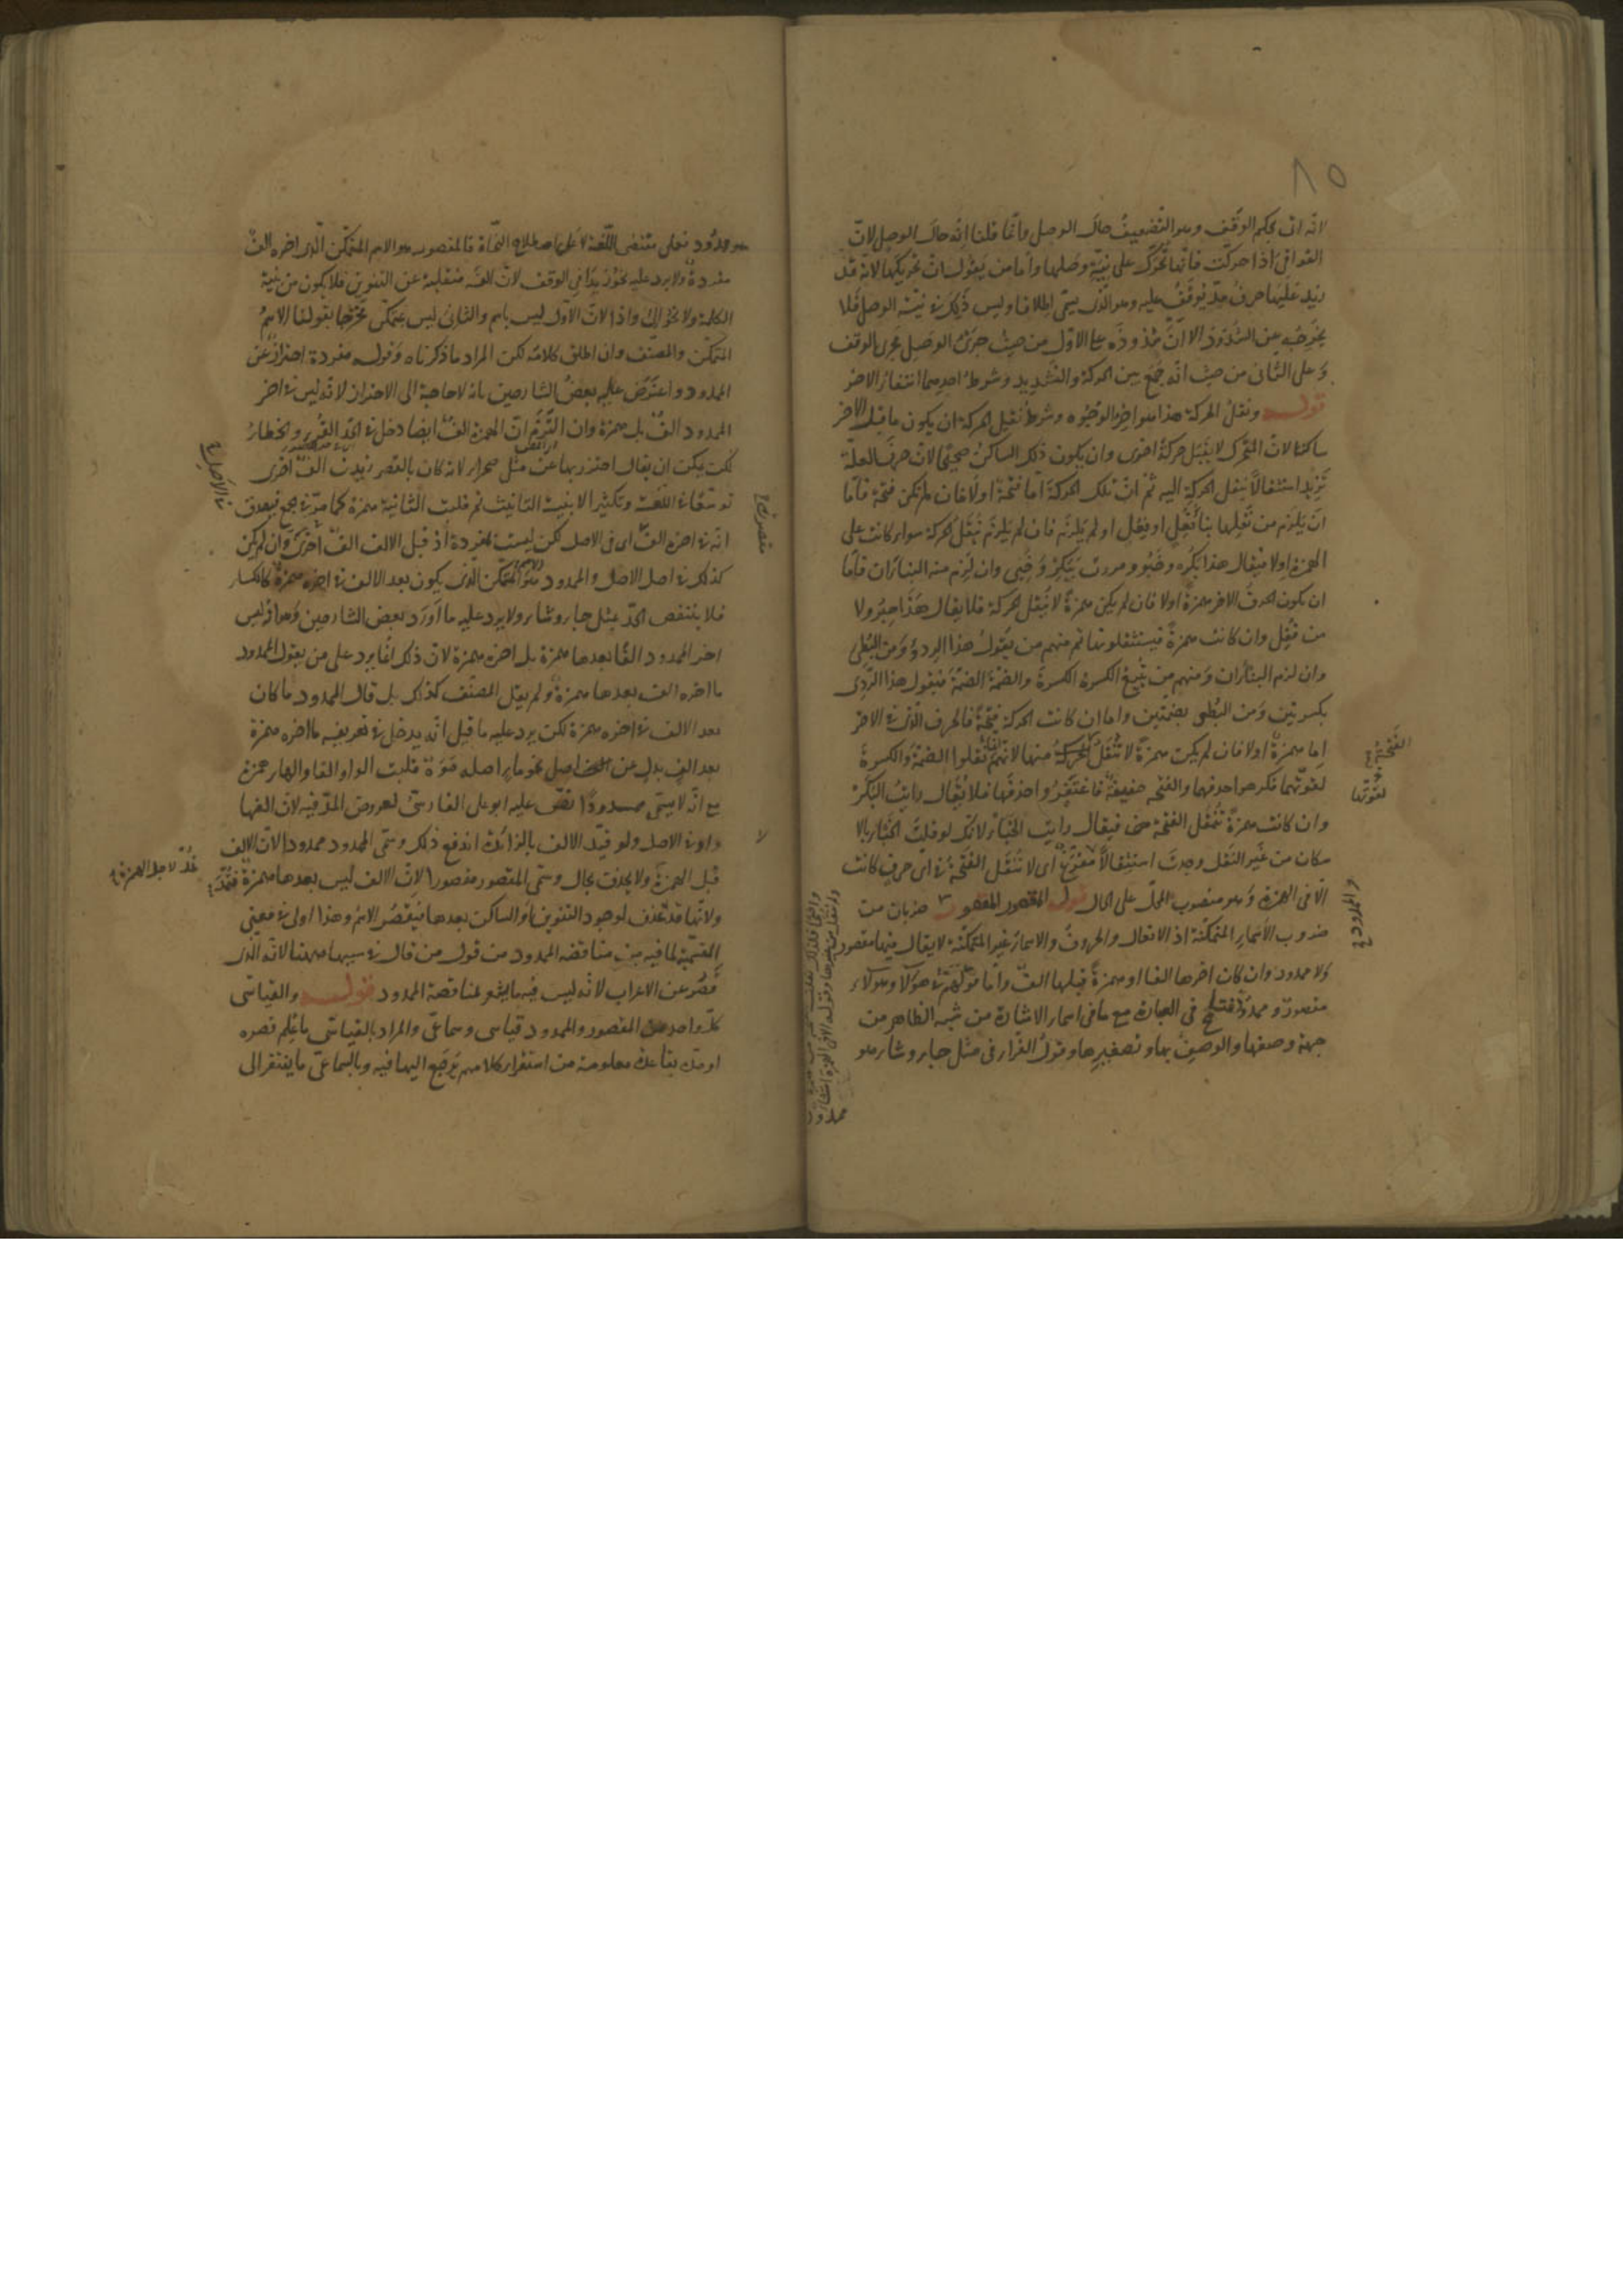 ٨٥
لانه اتى بحكم الوقف وهو التضعيف حال الوصل وانما قلنا انه حال الوصل لان
القوافى اذا حركت فانها تحرك على نية وصلها واما من يقول ان تحريكها لانه قد
زيد عليها حرف مد يوقف عليه وهو الذى يسمى اطلاقا وليس ذلك فى نية الوصل فلا
يخرجه عن الشذوذ الا ان شذوذه على الاول من حيث جرى الوصل مجرى الوقف
وعلى الثانى من حيث انه جمع بين الحركة والتشديد وشرط احدهما انتفاء الاخر
قوله ونقل الحركة هذا هو اخر الوجوه وشرط نقل الحركة ان يكون ما قبل الاخر
ساكنا لان المتحرك لا يقبل حركة اخرى وان يكون ذلك الساكن صحيحا لان حرف العلة
تزيد استثقالا بنقل الحركة اليه ثم ان تلك الحركة اما فتحة اولا فان لم تكن فتحة فاما
ان يلزم من نقلها بناء فعل او فعل او لم يلزم فان لم يلزم نقل الحركة سواء كانت على
الهمزة اولا فيقال هذا بكر وخبو ومررت ببكر وخبى وان لزم منه البناءان فاما
ان يكون الحرف الاخر همزة اولا فان لم يكن همزة لا ينقل الحركة فلا يقال هذا حبر ولا
من قفل وان كانت همزة فيستثقلونها ثم منهم من يقول هذا الردؤ ومن البطئ
وان لزم البناءان ومنهم من يتبع الكسرة الكسرة والضمة الضمة فيقول هذا الردى
بكسرتين ومن البطؤ بضمتين واما ان كانت الحركة فتحة فالحرف الذى فى الاخر
اما همزة اولا فان لم يكن همزة لا تنقل الحركة منها لانهم انما نقلوا الضمة والكسرة
لقوتهما فكرهوا حذفهما والفتحة خفيفة فاغتفروا حذفها فلا يقال رايت البكر
وان كانت همزة تنقل الفتحة فيقال رايت الخبا لانك لو قلت الخبا بالا
سكان من غير النقل وجدت استثقالا اى لا تنقل الفتحة فى اى حرف كانت
الا فى الهمزة وهو منصوب المحل على الحال قوله المقصور المقصور ضربان من
ضروب الاسماء المتمكنة اذ الافعال والحروف والاسماء غير المتمكنة لا يقال فيها مقصور
ولا ممدود وان كان اخرها الفا او همزة قبلها الف واما قولهم فى هؤلا وهؤلاء
مقصور وممدود فتسامح فى العبارة مع ما فى اسماء الاشارة من شبه الظاهر من
جهة وصفها والوصف بها وتصغيرها وقول القراء فى مثل جاء وشاء هو
ممدود
الفتحة
لقوتها
هو ممدود فعلى مقتضى اللغة لا على اصطلاح النحاة فالمقصور هو الاسم المتمكن الذى اخره الف
مفردة ولا يرد عليه نحو زيدا فى الوقف لان الفه منقلبة عن التنوين فلا يكون من بنية
الكلمة ولا نحو الى واذا لان الاول ليس باسم والثانى ليس بمتمكن فخرجا بقولنا الاسم
المتمكن والمصنف وان اطلق كلامه لكن المراد ما ذكرناه وقوله مفردة احتراز عن
الممدود واعترض عليه بعض الشارحين بانه لا حاجة الى الاحتراز لانه ليس فى اخر
الممدود الف بل همزة وان التزم ان الهمزة الف ايضا دخل فى الحد القرء والخطاء
لكن يمكن ان يقال احترز بها عن مثل صحراء لانه كان بالقصر زيدت الف اخرى
توسعا فى اللغة وتكثيرا لابنية التانيث ثم قلبت الثانية همزة كما مر فى الجمع فيصدق
انه فى اخره الف اى فى الاصل لكن ليست بمفردة اذ قبل الالف الف اخرى وان لم يكن
كذلك فى اصل الاصل والممدود هو المتمكن الذى يكون بعد الالف فى اخره همزة كالكساء
فلا ينتقض الحد بمثل جاء وشاء ولا يرد عليه ما اورد بعض الشارحين وهو انه ليس
اخر الممدود الفا بعدها همزة بل اخره همزة لان ذلك انما يرد على من يقول الممدود
ما اخره الف بعدها همزة ولم يقل المصنف كذلك بل قال الممدود ما كان
بعد الالف فى اخره همزة لكن يرد عليه ما قيل انه يدخل فى تعريفه ما اخره همزة
بعد الف بدل عن اصل نحو ماء اصله موه قلبت الواو الفا والهاء همزة
مع انه لا يسمى ممدودا نص عليه ابو على الفارسى لعروض المد فيه لان الفها
واو فى الاصل ولو قيد الالف بالزائدة اندفع ذلك وسمى الممدود ممدودا لان الالف
قبل الهمزة ولا يحذف بحال وسمى المقصور مقصورا لان الالف ليس بعدها همزة فتمد
ولانها قد تحذف لوجود التنوين او الساكن بعدها فيقصر الاسم وهذا اولى فى معنى
التسمية لما فيه من مناقضة الممدود من قول من قال فى سببها ههنا لانه الذى
قصر عن الاعراب لانه ليس فيه ما يشعر بمناقضة الممدود قوله والقياسى
كل واحد من المقصور والممدود قياسى وسماعى والمراد بالقياسى ما علم قصره
او مده بقاعدة معلومة من استقراء كلامهم يرجع اليها فيه وبالسماعى ما يفتقر الى
فى الاصل
مقصورة
تمد لاجل الهمزة